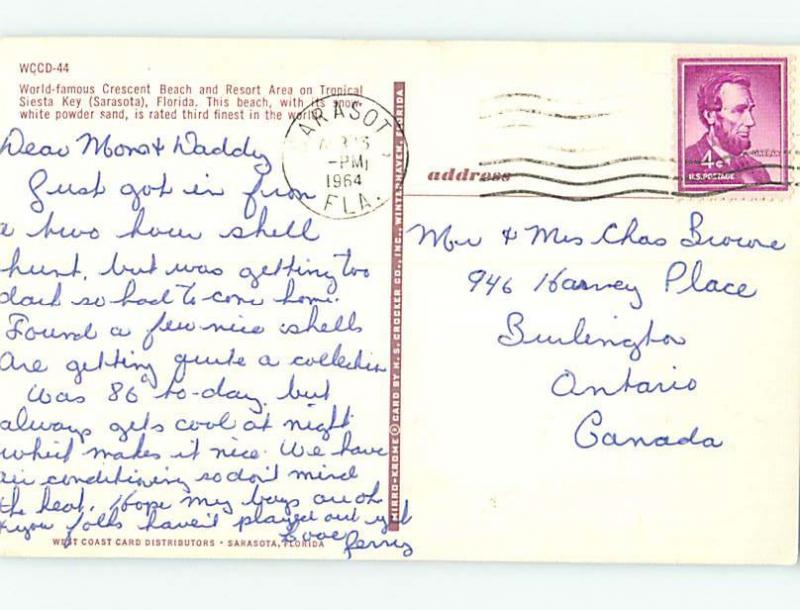 WCCD-44
World-famous Crescent Beach and Resort Area on Tropical
Siesta Key (Sarasota), Florida. This beach, with its snow-
white powder sand, is rated third finest in the world.
Dear Mom & Daddy
Just got in from
a two hour shell
hunt, but was getting too
dark so had to come home.
Found a few nice shells
Are getting quite a collection
Was 86 to-day, but
always gets cool at night
which makes it nice. We have
air conditioning so don't mind
the heat. Hope my boys are ok
& you folks haven't played out yet
Love
WEST COAST CARD DISTRIBUTORS • SARASOTA, FLORIDA
MIRRO-KROME ® CARD BY H. S. CROCKER CO., INC., WINTER HAVEN, FLORIDA
SARASOTA
-PM
1964
FLA.
4¢
U.S. POSTAGE
address
Mr & Mrs Chas Browne
946 Harvey Place
Burlington
Ontario
Canada